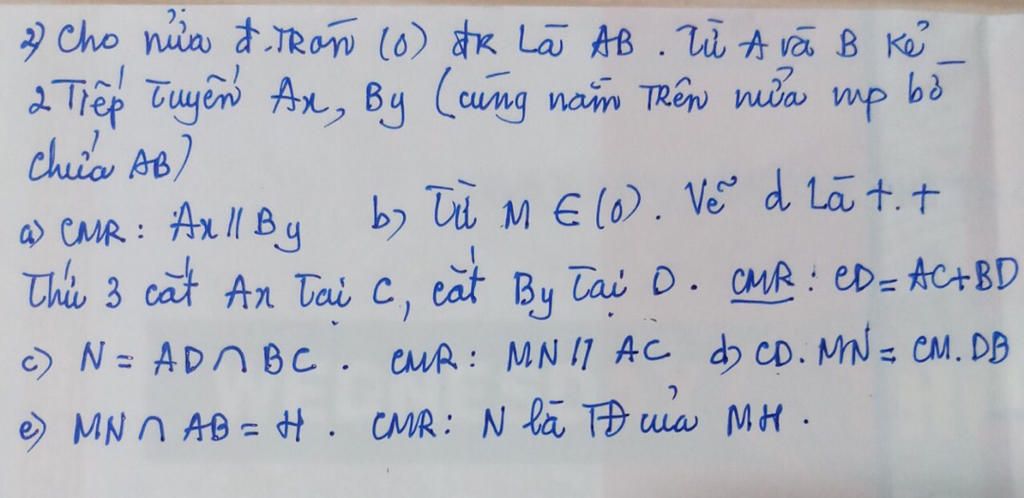 2) Cho nửa đ.TRòn (O) đk Là AB. Từ A và B kẻ
2 Tiếp Tuyến Ax, By (cùng nằm TRên nửa mp bờ
chứa AB)
a) CMR: Ax // By b) Từ M ∈ (O). Vẽ d Là t.t
Thứ 3 cắt Ax Tại C, cắt By Tại D. CMR: CD = AC+BD
c) N = AD ∩ BC. CMR: MN // AC d) CD.MN = CM.DB
e) MN ∩ AB = H. CMR: N là TĐ của MH.